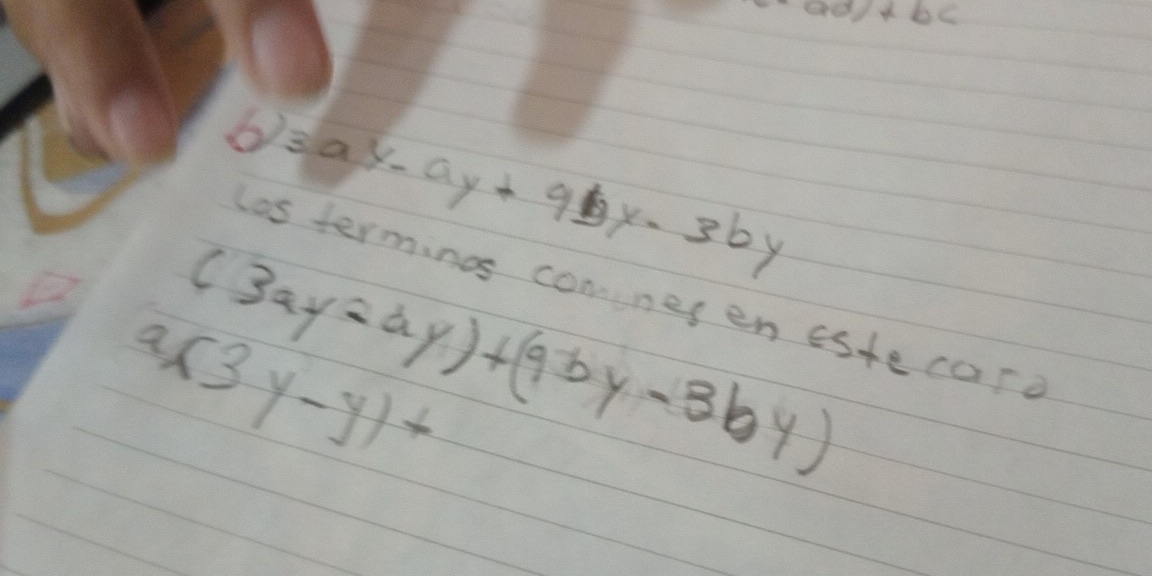 ad) + bc
b) 3ay - ay + 9by - 3by
Los terminos comunes en este caso
(3ay - ay) + (9by - 3by)
a(3y - y) +